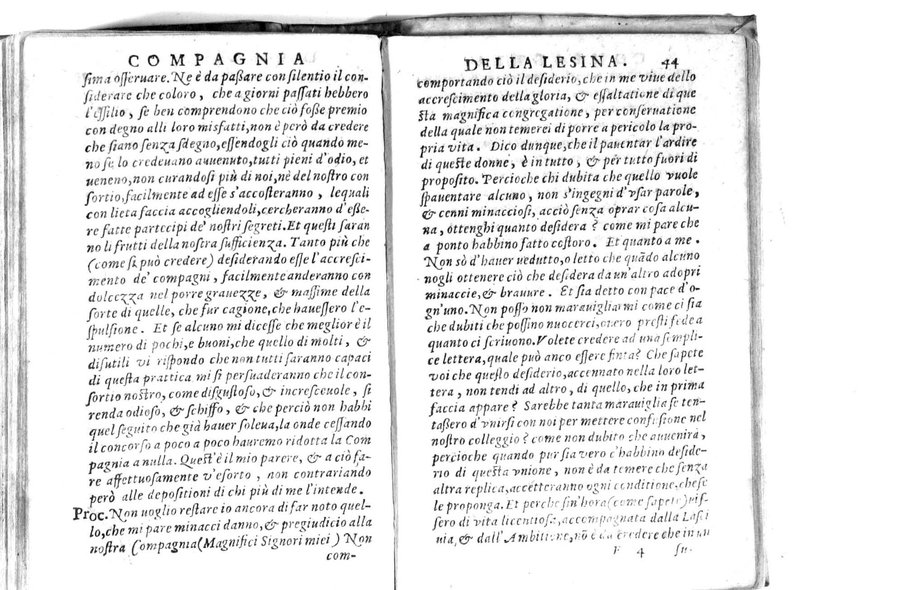 COMPAGNIA
sima osseruare. Ne è da passare con silentio il con-
siderare che coloro, che a giorni passati hebbero
l'essilio, se ben comprendono che ciò fosse premio
con degno alli loro misfatti, non è però da credere
che siano senza sdegno, essendogli ciò quando me-
no se lo credeuano auuenuto, tutti pieni d'odio, et
ueneno, non curandosi più di noi, nè del nostro con
sortio, facilmente ad esse s'accosteranno, lequali
con lieta faccia accogliendoli, cercheranno d'esse-
re fatte partecipi de' nostri segreti. Et questi saran
no li frutti della nostra sufficienza. Tanto più che
(come si può credere) desiderando esse l'accresci-
mento de' compagni, facilmente anderanno con
dolcezza nel porre grauezze, & massime della
sorte di quelle, che fur cagione, che hauessero l'e-
spulsione. Et se alcuno mi dicesse che meglior è il
numero di pochi, e buoni, che quello di molti, &
disutili vi rispondo che non tutti saranno capaci
di questa prattica, mi si persuaderanno che il con-
sortio nostro, come disgustoso, & incresceuole, si
renda odioso, & schiffo, & che perciò non habbi
quel seguito che già hauer soleua, la onde cessando
il concorso a poco a poco hauremo ridotta la Com
pagnia a nulla. Quest'è il mio parere, & a ciò fa-
re affettuosamente v'esorto, non contrariando
però alle depositioni di chi più di me l'intende.
Proc. Non uoglio restare io ancora di far noto quel-
lo, che mi pare minacci danno, & pregiudicio alla
nostra Compagnia (Magnifici Signori miei) Non
com-
DELLA LESINA. 44
comportando ciò il desiderio, che in me viue dello
accrescimento della gloria, & essaltatione di que
sta magnifica congregatione, per conseruatione
della quale non temerei di porre a pericolo la pro-
pria vita. Dico dunque, che il pauentar l'ardire
di queste donne, è in tutto, & per tutto fuori di
proposito. Percioche chi dubita che quello vuole
spauentare alcuno, non s'ingegni d'vsar parole,
& cenni minacciosi, acciò senza oprar cosa alcu-
na, ottenghi quanto desidera? come mi pare che
a ponto habbino fatto costoro. Et quanto a me.
Non sò d'hauer vedutto, o letto che quãdo alcuno
uogli ottenere ciò che desidera da un'altro adopri
minaccie, & brauure. Et sia detto con pace d'o-
gn'uno. Non posso non marauigliami come ci sia
che dubiti che possino nuocerci, ouero presti fede a
quanto ci scriuono. Volete credere ad una sempli-
ce lettera, quale può anco essere finta? Che sapete
voi che questo desiderio, accennato nella loro let-
tera, non tendi ad altro, di quello, che in prima
faccia appare? Sarebbe tanta marauiglia se ten-
tassero d'vnirsi con noi per mettere confusione nel
nostro colleggio? come non dubito che auuenirà,
percioche quando pur sia vero c'habbino deside-
rio di questa vnione, non è da temere che senza
altra replica, accetteranno ogni conditione, che se
le proponga. Et perche sin'hora (come sapete) uis-
sero di vita licentiosa, accompagnata dalla Lasci
uia, & dall'Ambitione, nõ è da credere che in un
F 4 su-